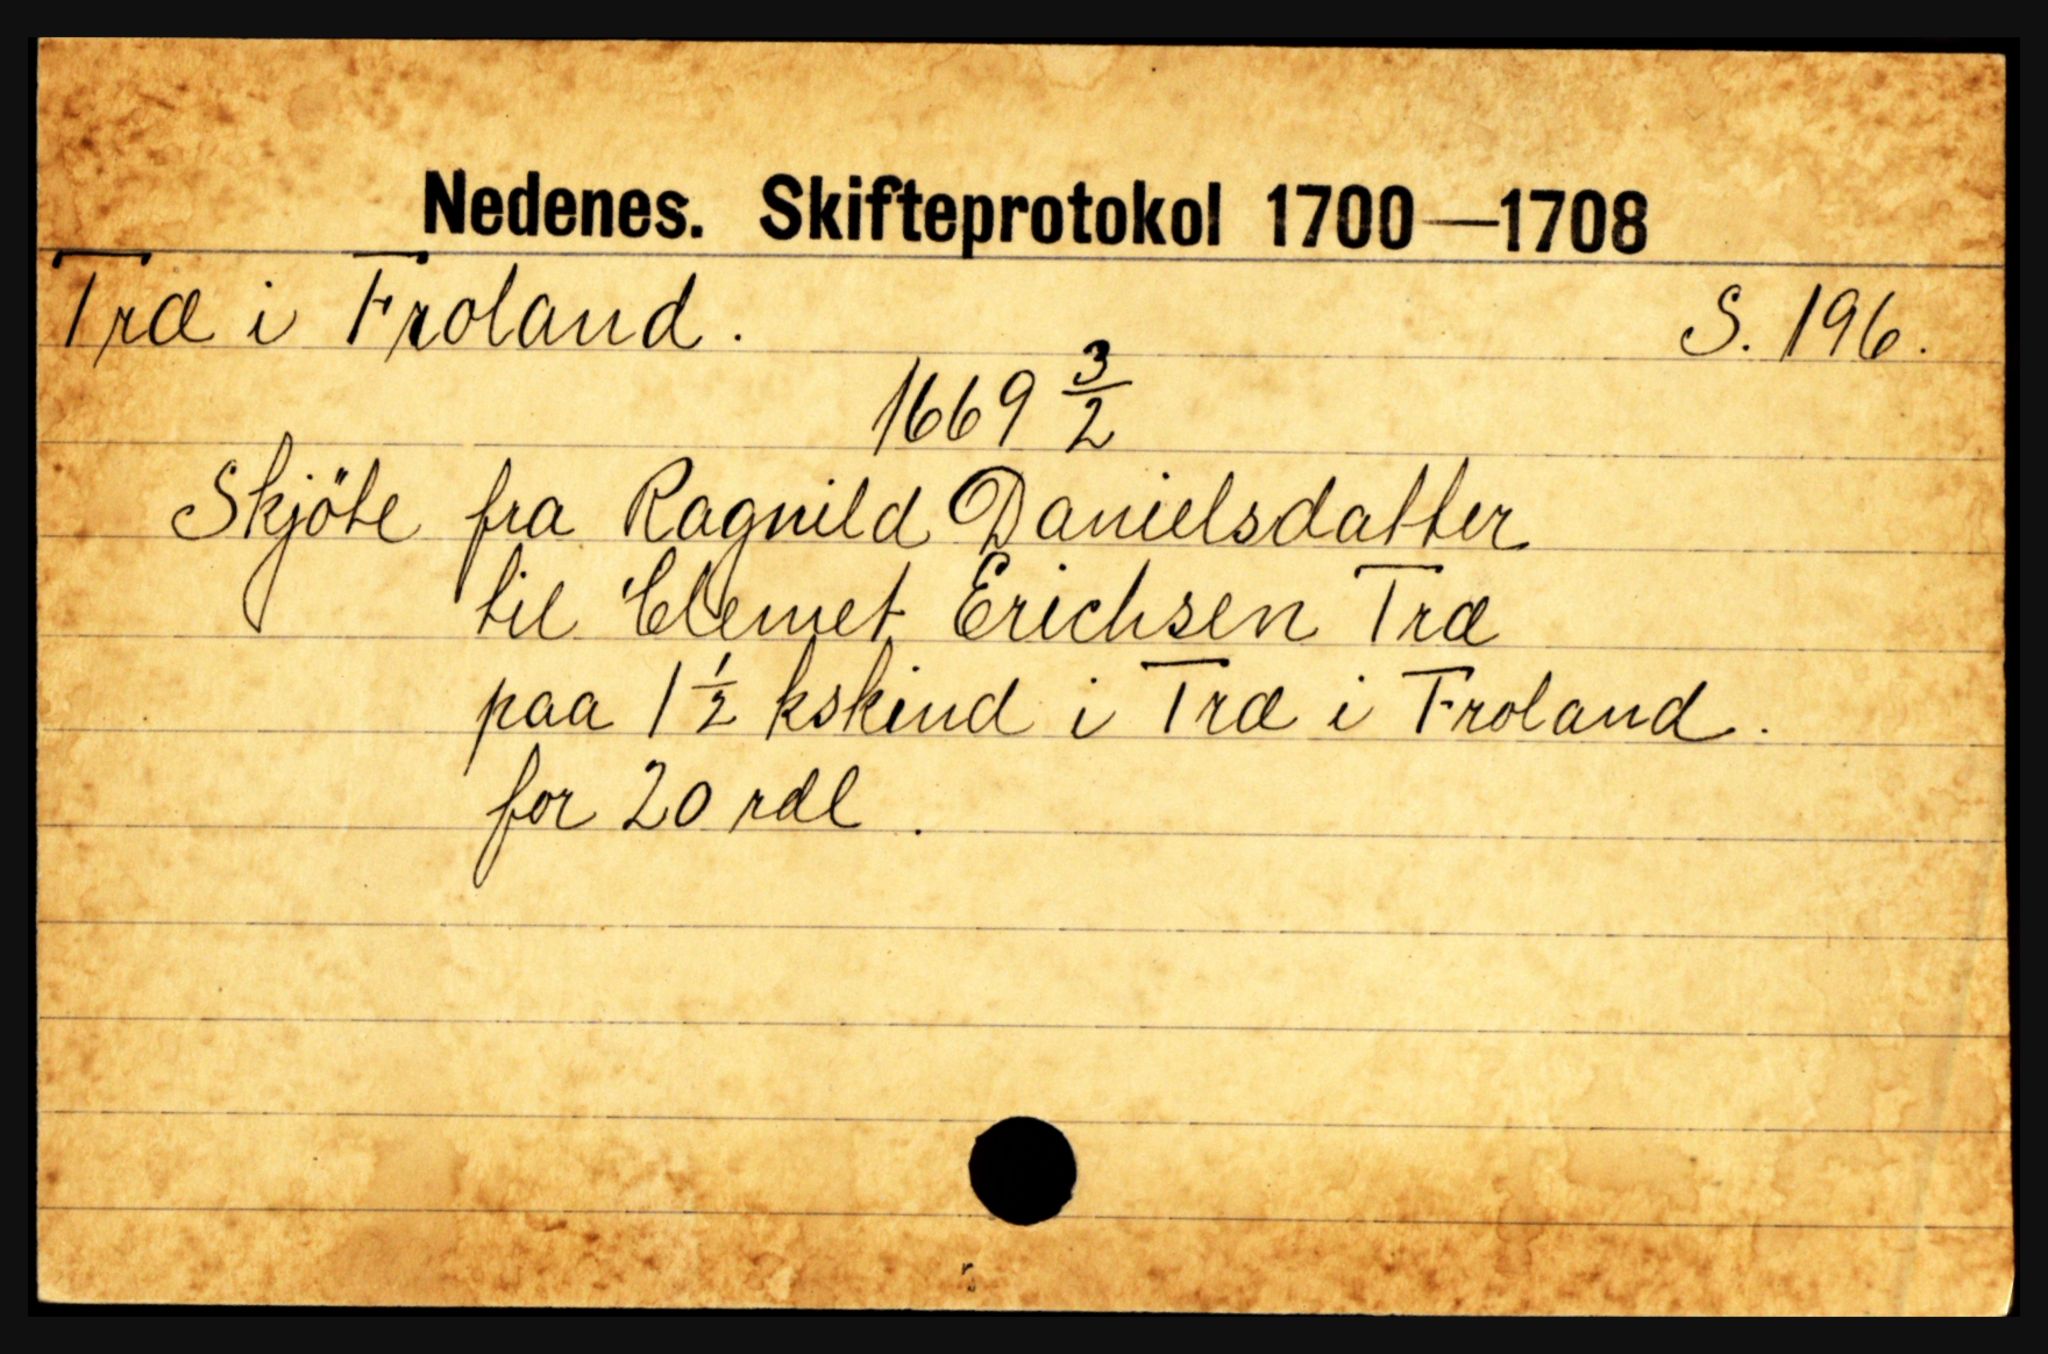 Nedenes. Skifteprotokol 1700—1708
Træ i Froland. S. 196.
1669 3/2
Skjöte fra Ragnild Danielsdatter
til Clemet Erichsen Træ
paa 1 1/2 kskind i Træ i Froland.
for 20 rdl.